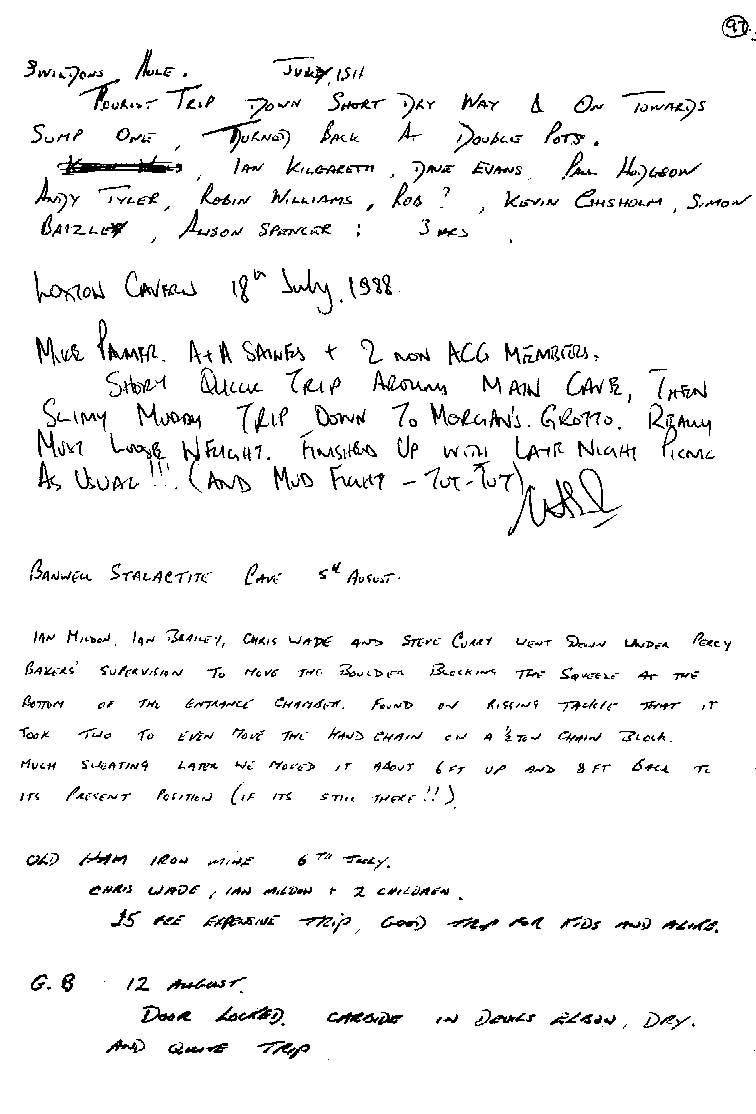 97
Swildons Hole. July 15th
Tourist Trip Down Short Dry Way & On Towards
Sump One, Turned Back At Double Pots.
, Ian Kilgareth, Dave Evans, Paul Hodgson
Andy Tyler, Robin Williams, Rob ?, Kevin Chisholm, Simon
Baizley, Alison Spencer : 3 hrs.
Loxton Cavern 18th July, 1988.
Mike Palmer. A+A Saines + 2 non ACG Members.
Short Quick Trip Around Main Cave, Then
Slimy Muddy Trip Down To Morgan's Grotto. Really
Must Loose Weight. Finished Up With Late Night Picnic
As Usual!!! (And Mud Fight – Tut-Tut)
Banwell Stalactite Cave 5th August.
Ian Mildon, Ian Brailey, Chris Wade and Steve Curry went Down under Percy
Bakers' supervision to move the Boulder Blocking the Squeeze at the
Bottom of the Entrance Chamber. Found on rigging tackle that it
took two to even move the hand chain on a ½ ton chain block.
Much sweating later we moved it about 6 ft up and 8 ft back to
its present position (if its still there!!).
Old Ham Iron Mine 6th July.
Chris Wade, Ian Mildon + 2 children.
£5 fee expensive trip, good trip for kids and alike.
G.B 12 August.
Door Locked. Carbide in Devils Elbow, Dry.
And quite trip